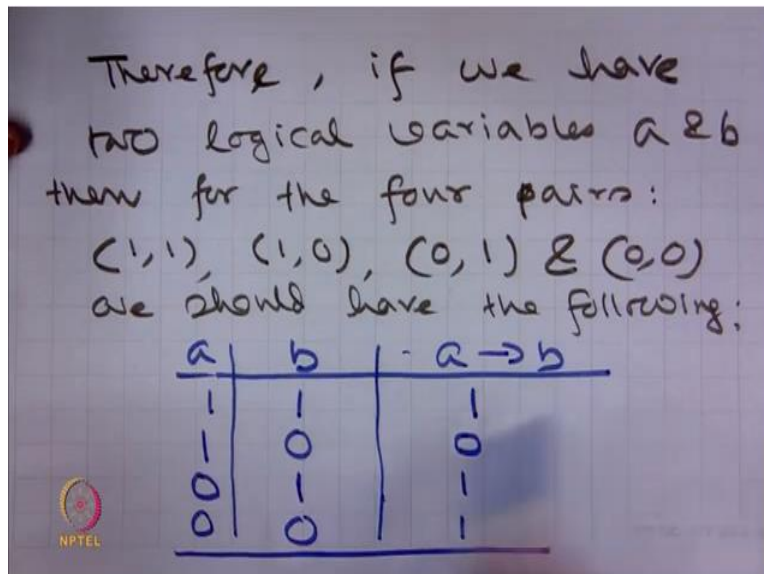 Therefore, if we have
two logical variables a & b
then for the four pairs:
(1,1), (1,0), (0,1) & (0,0)
we should have the following:
a | b | a → b
1 | 1 | 1
1 | 0 | 0
0 | 1 | 1
0 | 0 | 1
NPTEL